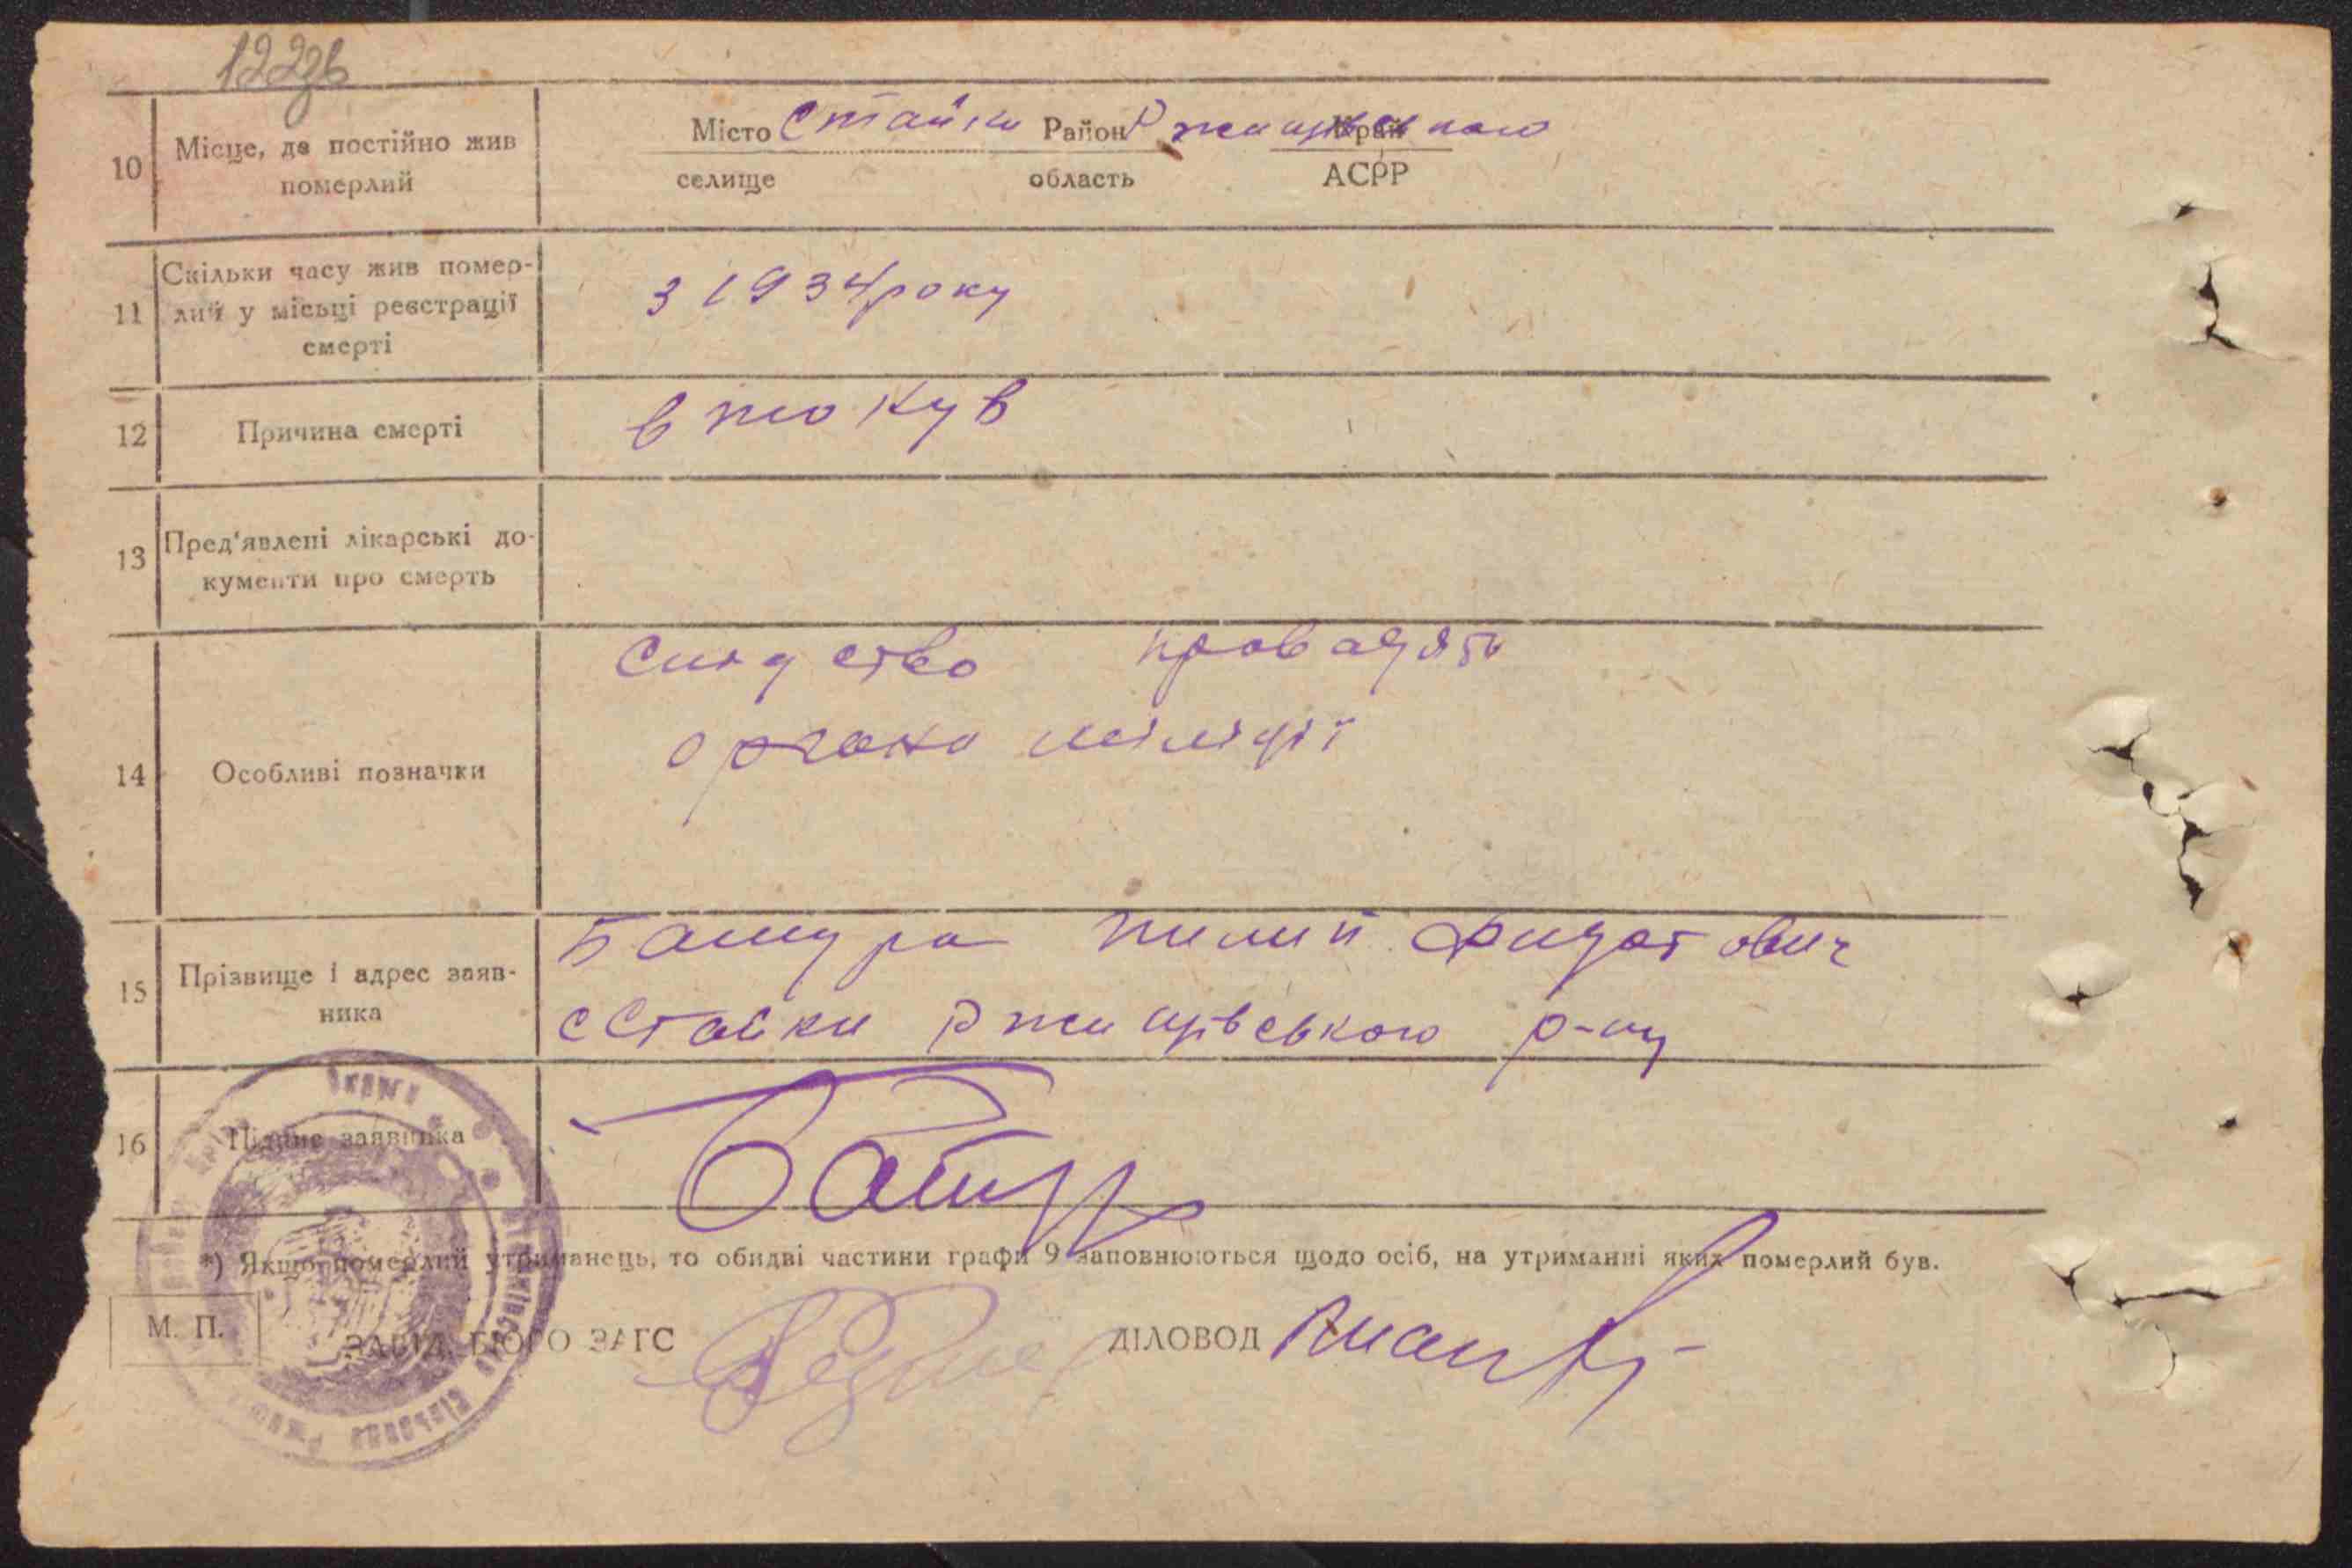 122зв
10
Місце, де постійно жив
померлий
Місто Стайки Район Ржищівського Край
селище область АСРР
11
Скільки часу жив помер-
лий у місьці реєстрації
смерті
з 1934 року
12
Причина смерті
втокув
13
Пред'явлені лікарські до-
кументи про смерть
14
Особливі позначки
Слідство провадять
органи міліції
15
Прізвище і адрес заяв-
ника
Башура Пилип
с Стайки Ржищівського р-ну
16
Підпис заявника
*) Якщо померлий утриманець, то обидві частини графи 9 заповнюються щодо осіб, на утриманні яких померлий був.
М. П.
ЗАВІД. БЮРО ЗАГС
ДІЛОВОД